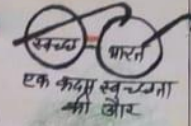 स्वच्छ भारत
एक कदम स्वच्छता
की ओर